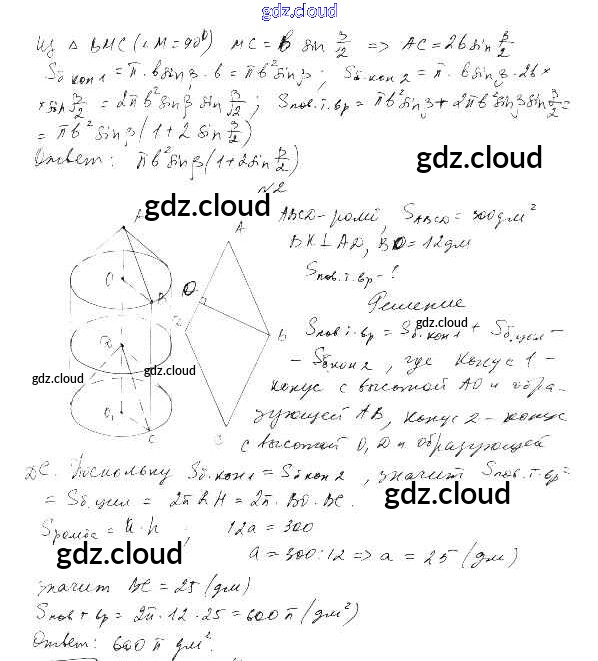 gdz.cloud
Из △ BMC (∠M=90°) MC = b sin β/2 => AC = 2b sin β/2
Sб.кон1 = π·b sin β·b = πb² sin β; Sб.кон2 = π·b sin β·2b ×
× sin β/2 = 2πb² sin β sin β/2; Sпов.т.вр = πb² sin β + 2πb² sin β sin β/2 =
= πb² sin β (1 + 2 sin β/2)
Ответ: πb² sin β (1 + 2 sin β/2)
gdz.cloud
№2
gdz.cloud
ABCD - ромб, SABCD = 300 дм²
BK ⊥ AD, BO = 12 дм
Sпов.т.вр - ?
Решение
gdz.cloud
Sпов.т.вр = Sб.кон1 + Sб.цил -
- Sб.кон2, где конус 1 -
конус с высотой AO и обра-
зующей AB, конус 2 - конус
с высотой O₁D и образующей
gdz.cloud
gdz.cloud
A
O
B
D
O₁
C
A
O
B
C
DC. Поскольку Sб.кон1 = Sб.кон2, значит Sпов.т.вр =
= Sб.цил = 2πRH = 2π·BO·BC.
gdz.cloud
Sромба = a·h; 12a = 300
gdz.cloud
a = 300:12 => a = 25 (дм)
Значит BC = 25 (дм)
Sпов т вр = 2π·12·25 = 600π (дм²)
Ответ: 600π дм².
gdz.cloud